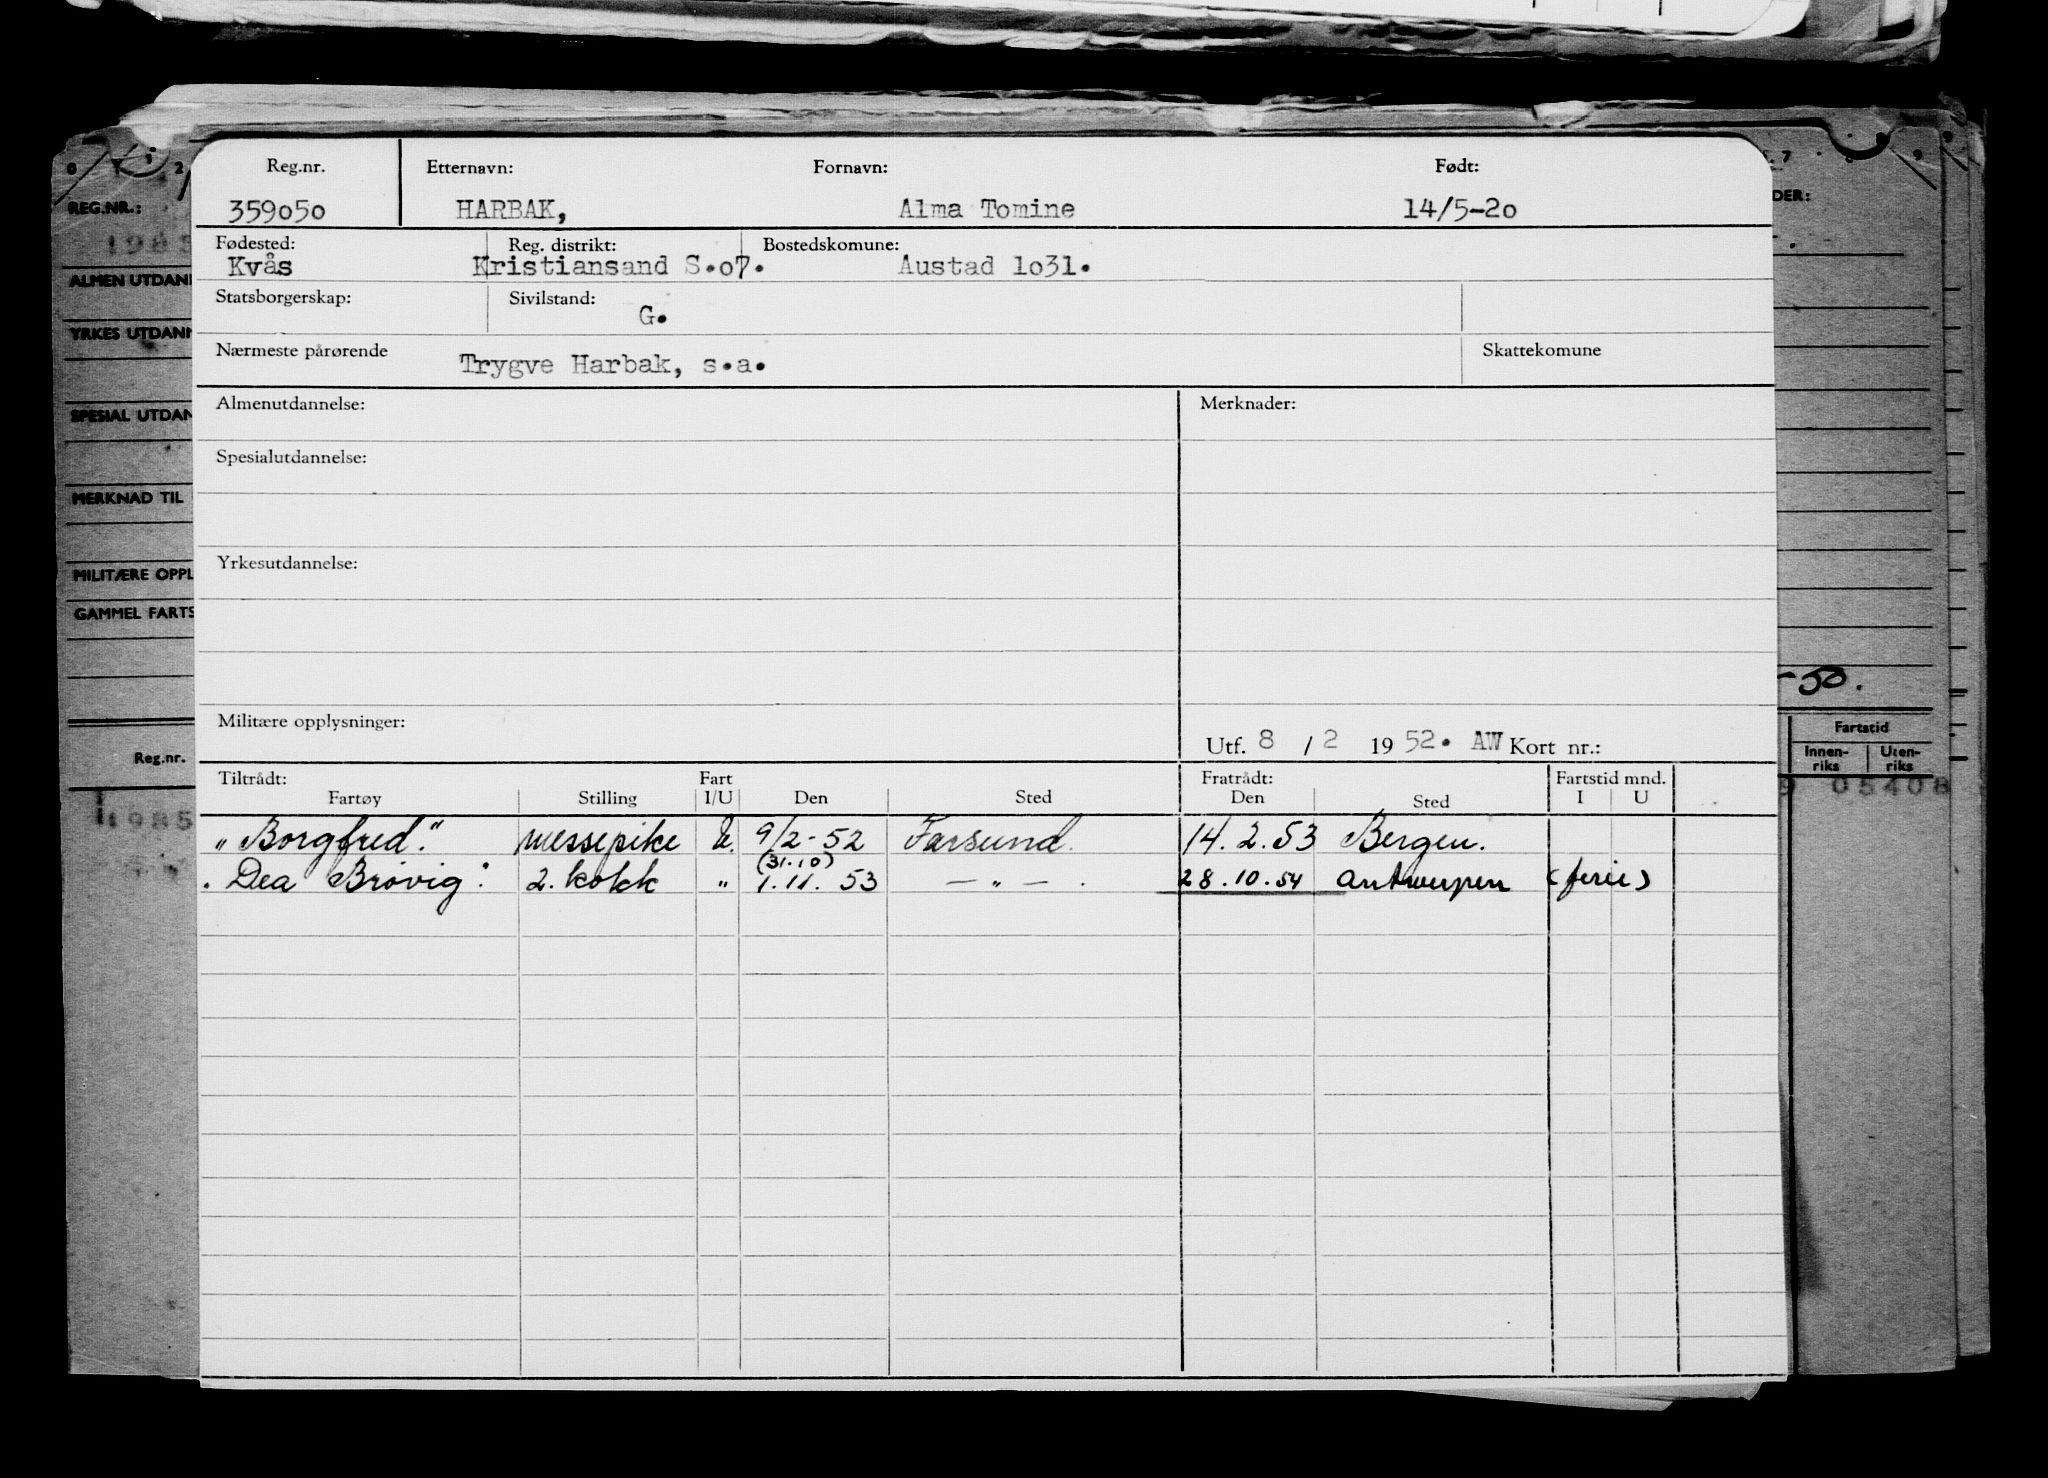 0 2 7 8 9 9
REG.NR.: DER:
ALMEN UTDANN
YRKES UTDANN
SPESIAL UTDAN
MERKNAD TIL
MILITÆRE OPPL
GAMMEL FARTS
-50.
Reg.nr. Fartstid
Innen-riks Uten-riks
1985 9 05408
Reg.nr. Etternavn: Fornavn: Født:
359o5o HARBAK, Alma Tomine 14/5-2o
Fødested: Reg. distrikt: Bostedskomune:
Kvås Kristiansand S.o7. Austad 1o31.
Statsborgerskap: Sivilstand:
G.
Nærmeste pårørende Skattekomune
Trygve Harbak, s.a.
Almenutdannelse: Merknader:
Spesialutdannelse:
Yrkesutdannelse:
Militære opplysninger:
Utf. 8 / 2 19 52. AW Kort nr.:
Tiltrådt: Fart Fratrådt: Fartstid mnd.
Fartøy Stilling I/U Den Sted Den Sted I U
„Borgfred." messepike U. 9/2-52 Farsund. 14.2.53 Bergen.
(31.10)
"Dea Brøvig". 2. kokk " 1.11. 53 — " — . 28.10.54 Antwerpen (ferie)